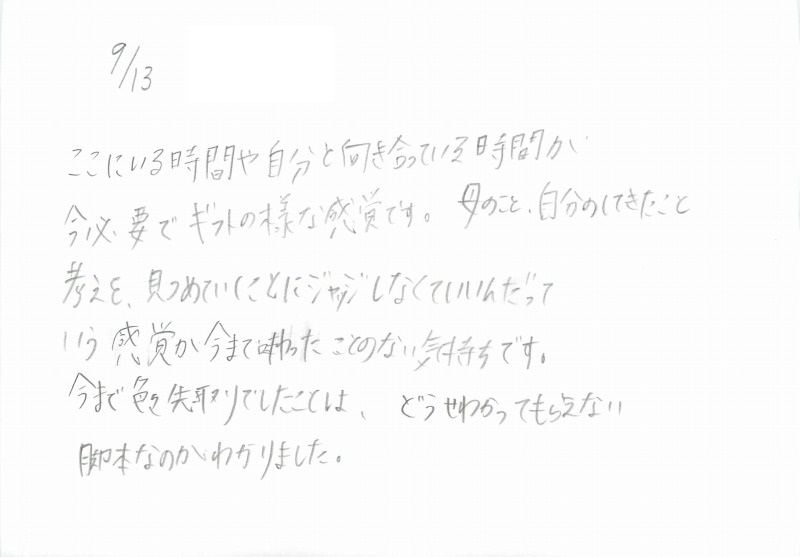 9/13
ここにいる時間や自分と向き合っている時間が
今必要でギフトの様な感覚です。母のこと、自分のしてきたこと
考えを、見つめていくことにジャッジしなくていいんだって
いう感覚が今まで味わったことのない気持ちです。
今まで色を失取りでしたことは、どうせわかってもらえない
脚本なのがわかりました。